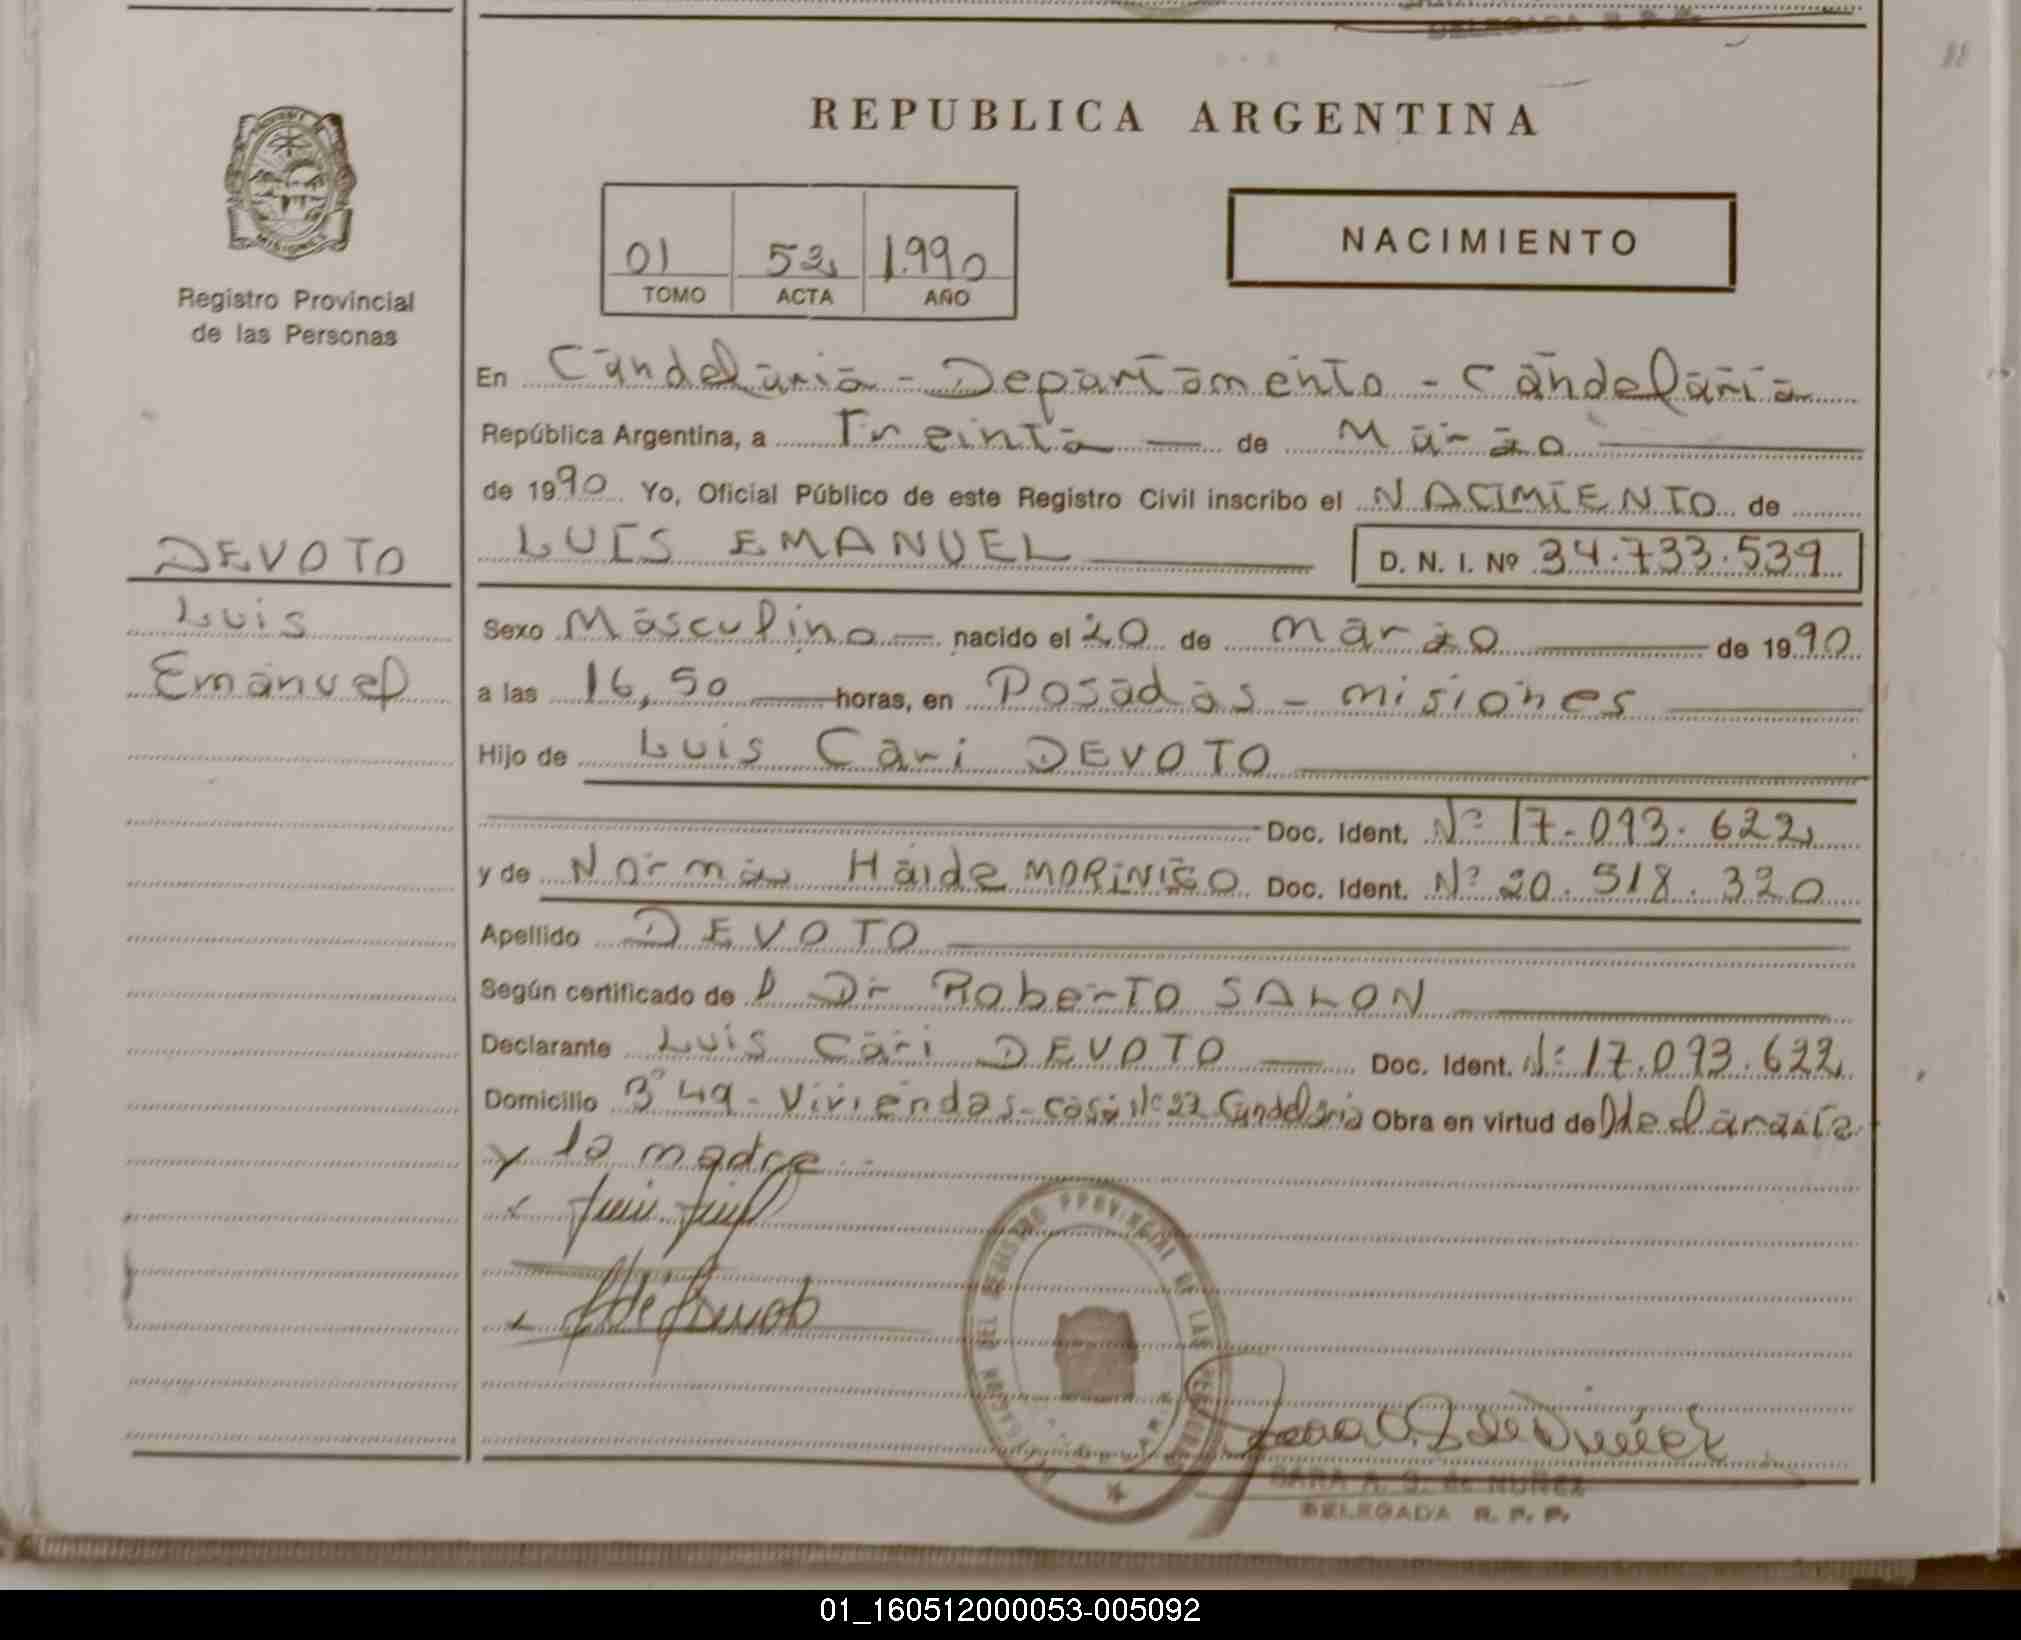 REPUBLICA ARGENTINA
MISIONES
Registro Provincial
de las Personas
01 52 1.990
TOMO ACTA AÑO
NACIMIENTO
En Candelaria - Departamento - Candelaria
República Argentina, a Treinta — de Marzo
de 1990 Yo, Oficial Público de este Registro Civil inscribo el NACIMIENTO de
DEVOTO
Luis
Emanuel
LUIS EMANUEL D. N. I. Nº 34.733.539
Sexo Masculino — nacido el 20 de marzo — de 1990
a las 16,50 — horas, en Posadas - misiones
Hijo de Luis Cari DEVOTO
Doc. Ident. Nº 17.093.622
y de Norma Haide MORINIGO Doc. Ident. Nº 20.518.320
Apellido DEVOTO
Según certificado de l Dr Roberto SALON
Declarante Luis Cari DEVOTO — Doc. Ident. Nº 17.093.622
Domicilio 3º 49 - Viviendas - casa Nº 27 Candelaria Obra en virtud de Declarante
y la madre
DEL REGISTRO PROVINCIAL DE LAS PERSONAS
SARA A. G. de NUÑEZ
DELEGADA R. P. P.
01_160512000053-005092